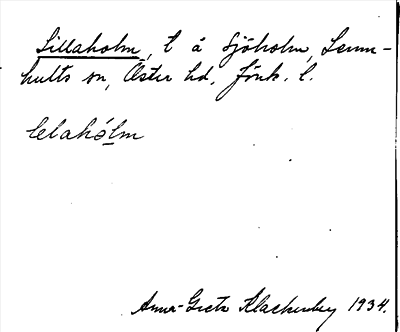 Lillaholm, t å Sjöholm, Lenn-
hults sn, Öster hd, Jönk. l.
lelahólm
Anna-Greta Klackenberg 1934.